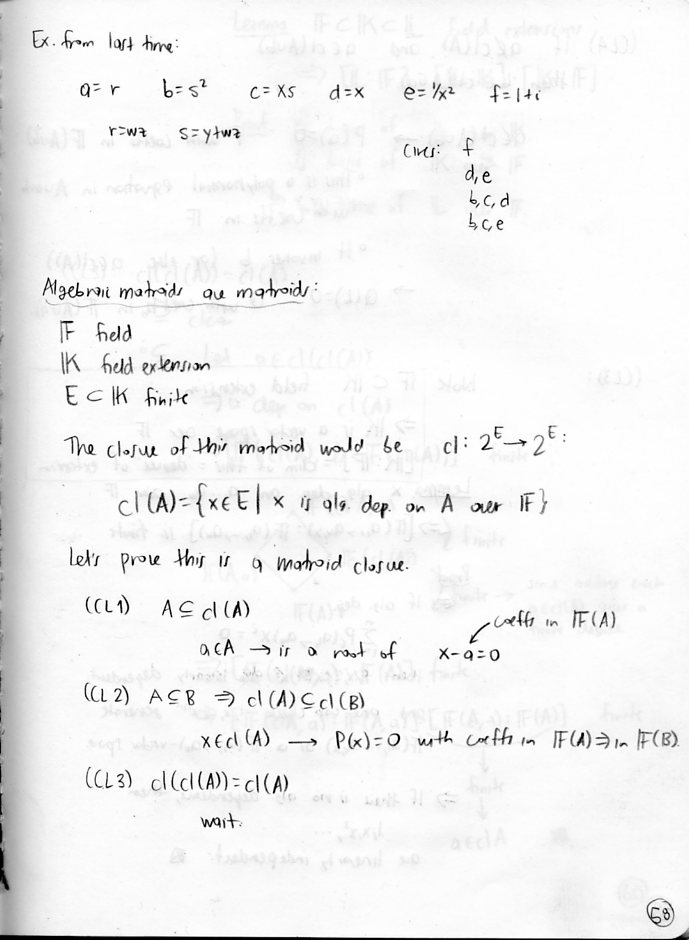 Ex. from last time:
a=r b=s² c=xs d=x e=1/x² f=1+i
r=wz s=y+wz
Circs: f
d,e
b,c,d
b,c,e
Algebraic matroids are matroids:
𝔽 field
𝕂 field extension
E⊂𝕂 finite
The closure of this matroid would be cl: 2^E→2^E:
cl(A)={x∈E | x is alg. dep. on A over 𝔽}
Let's prove this is a matroid closure.
(CL1) A⊆cl(A)
coeffs in 𝔽(A)
a∈A → is a root of x-a=0
(CL2) A⊆B ⇒ cl(A)⊆cl(B)
x∈cl(A) → P(x)=0 with coeffs in 𝔽(A)⇒in 𝔽(B)
(CL3) cl(cl(A))=cl(A)
wait.
58